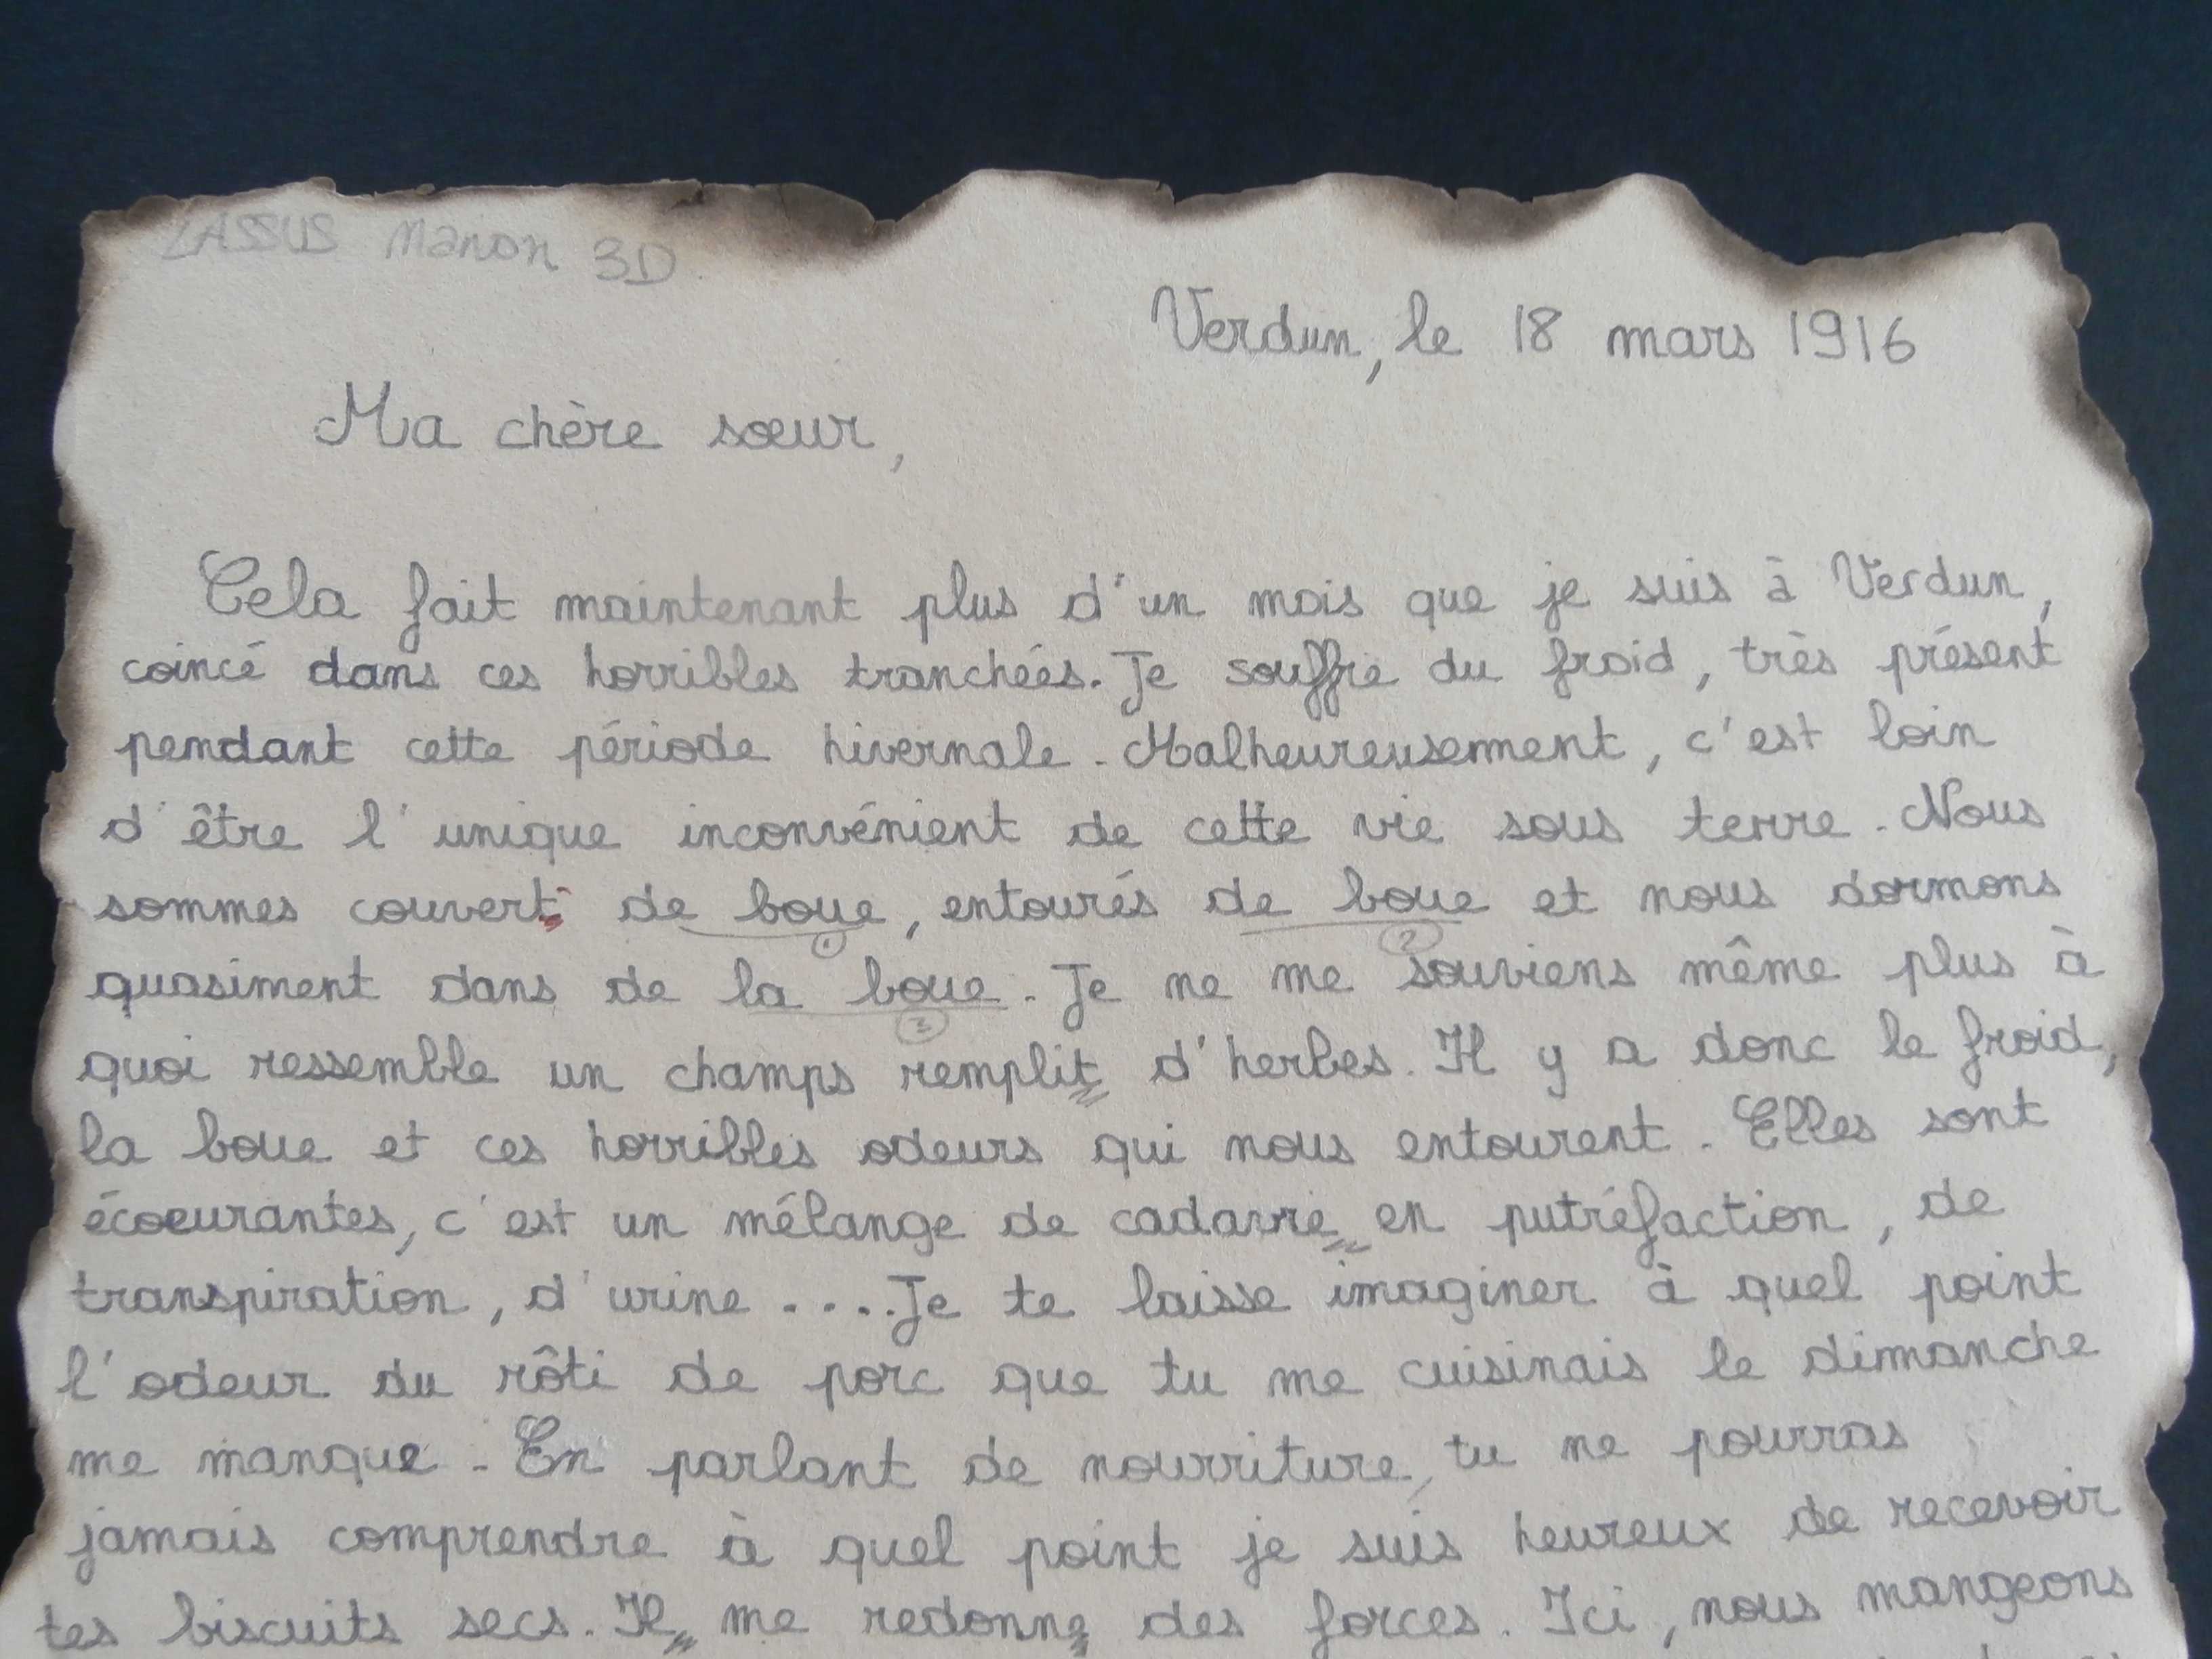 LASSUS Manon 3D
Verdun, le 18 mars 1916
Ma chère sœur,
Cela fait maintenant plus d'un mois que je suis à Verdun,
coincé dans ces horribles tranchées. Je souffre du froid, très présent
pendant cette période hivernale. Malheureusement, c'est loin
d'être l'unique inconvénient de cette vie sous terre. Nous
sommes couvert de boue, entourés de boue et nous dormons
1 2
quasiment dans de la boue. Je ne me souviens même plus à
3
quoi ressemble un champs remplit d'herbes. Il y a donc le froid,
la boue et ces horribles odeurs qui nous entourent. Elles sont
écoeurantes, c'est un mélange de cadavre en putréfaction, de
transpiration, d'urine .... Je te laisse imaginer à quel point
l'odeur du rôti de porc que tu me cuisinais le dimanche
me manque. En parlant de nourriture, tu ne pourras
jamais comprendre à quel point je suis heureux de recevoir
tes biscuits secs. Il me redonne des forces. Ici, nous mangeons